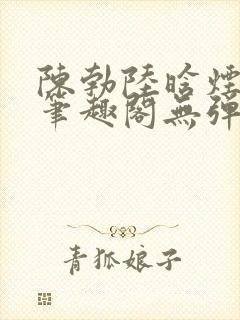 陳勃陸晗煙
筆趣閣無彈
青狐娘子